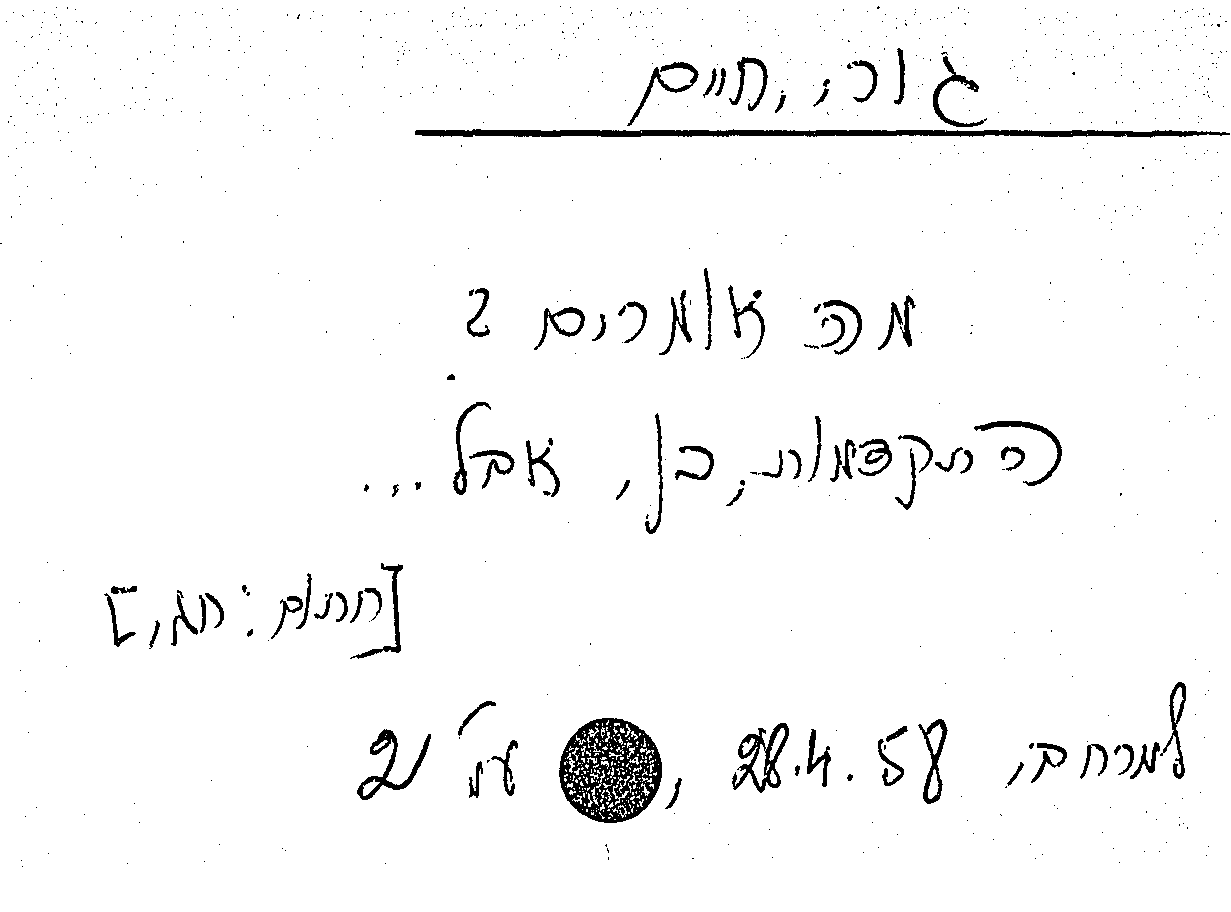 גורי, חיים
מה אומרים ?
התקדמות, כן, אבל...
[חתום: חג,]
למרחב, 28.4.58, עמ' 2